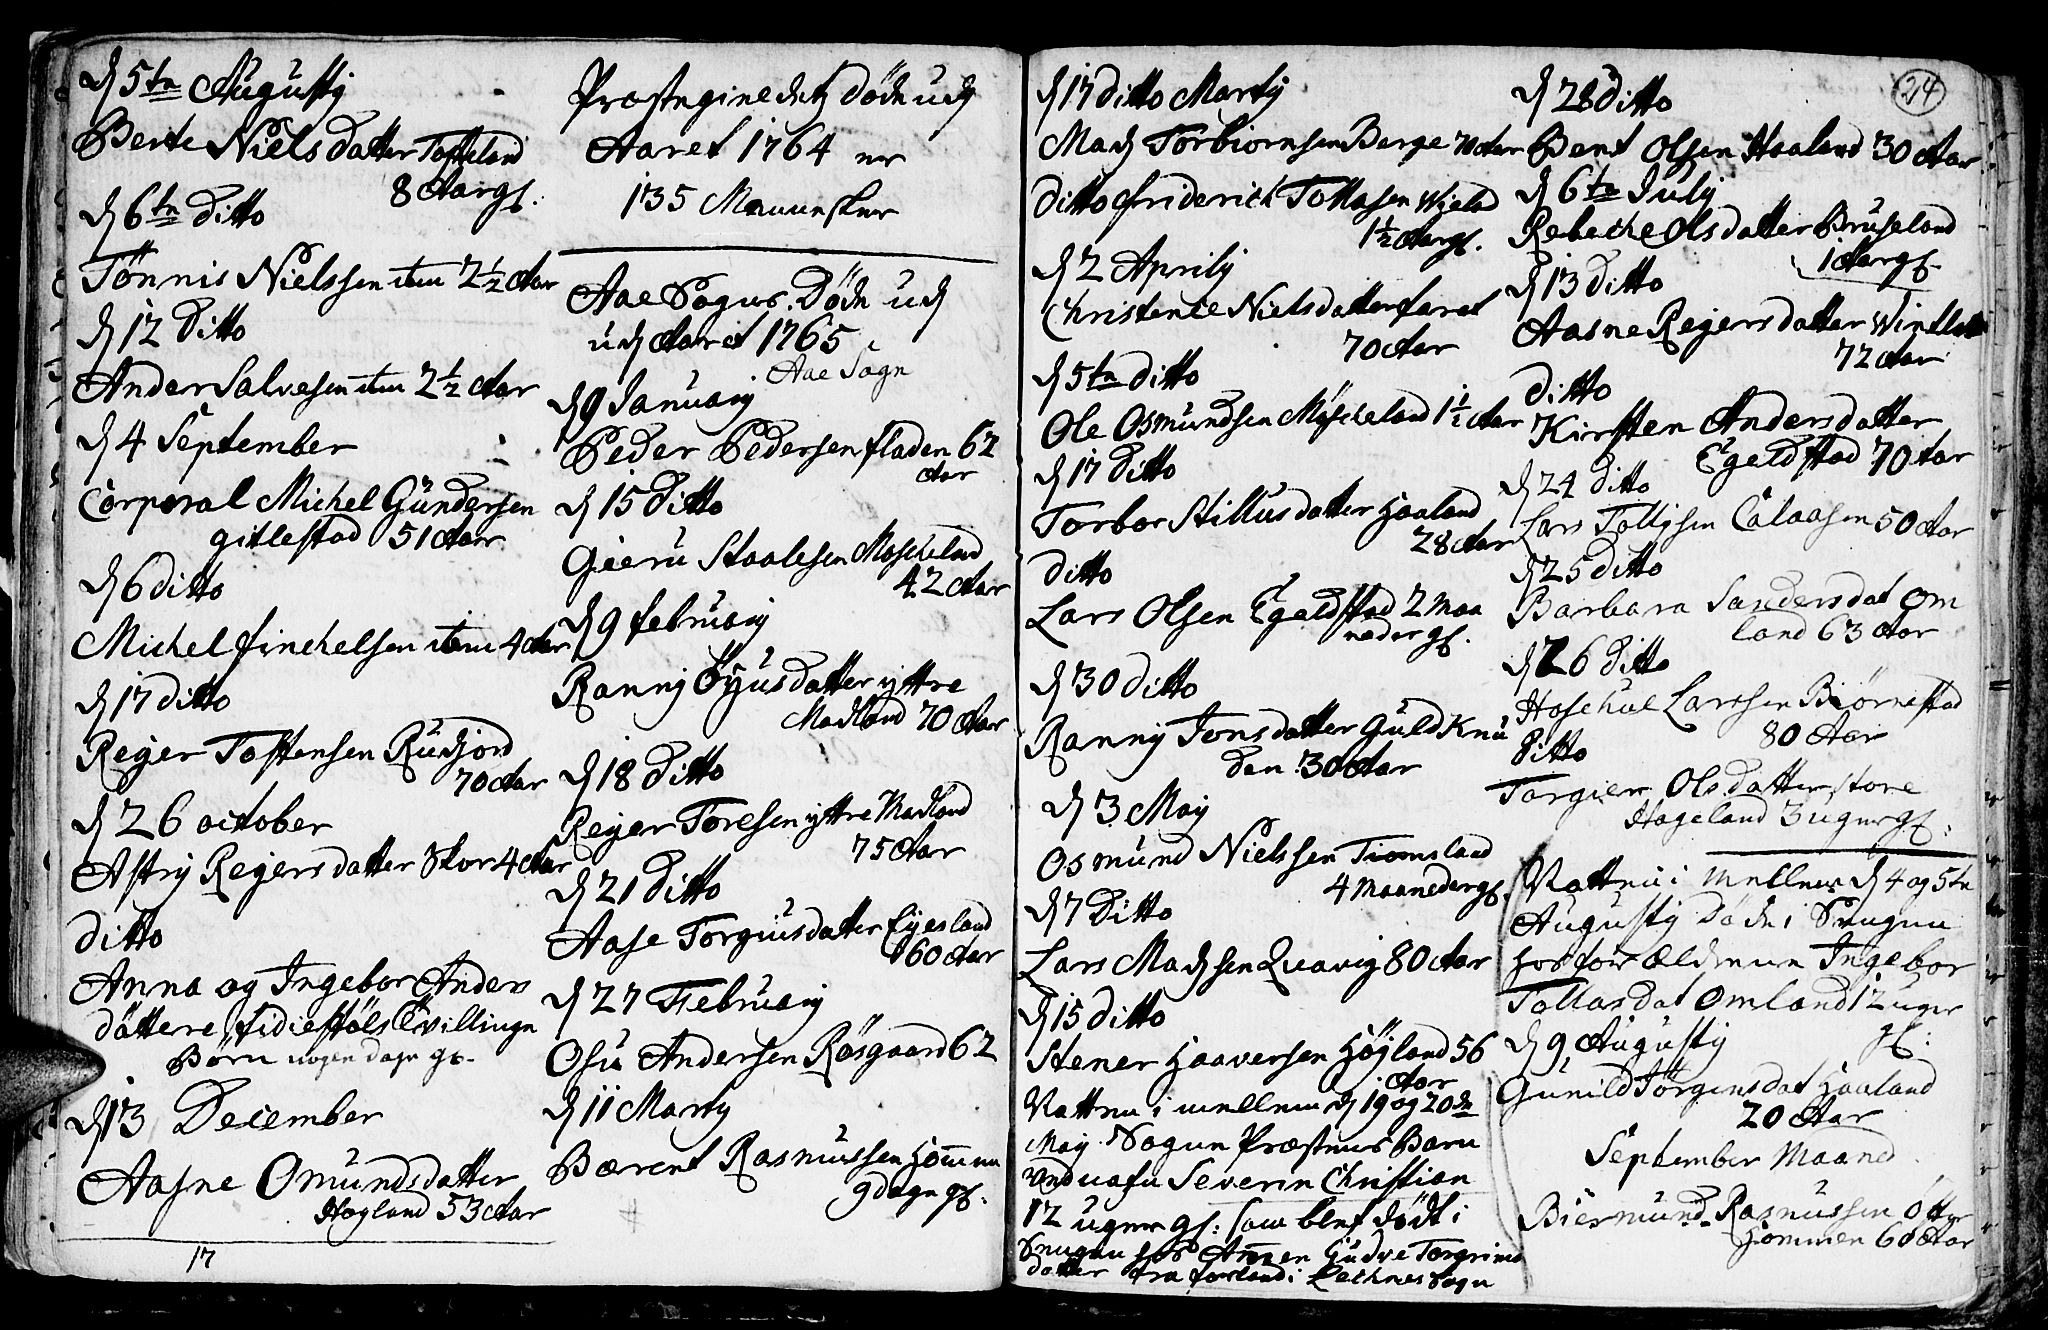 d 5te Augustij
Berte Niels datter Tofteland
8 Aar gl.
d 6te Ditto
Tönnis Nielssen item 2½ Aar
d 12 Ditto
Ander Salvesen item 2½ Aar
d 4 September
Corporal Michel Gundersen
gitlestad 51 Aar
d 6 ditto
Michel finchelsen item 4 Aar
d 17 ditto
Rejer Tostensen Rudjord
70 Aar
d 26 october
Astrj Rejers datter Skor 4 Aar
ditto
Anna og Ingebor Anders
döttere, fidjestöls Tvillinge
Börn nogen dage gl.
d 13 December
Aasne Omunds datter
Högland 53 Aar
17
Præstegieldetz Döde udj
Aaret 1764 er
135 Mennesker
Aae Sogns Döde udj
udj Aaret 1765
Aae Sogn
d 9 Januarj
Peder Pedersen fladen 62
Aar
d 15 Ditto
Gieru Staalesen Moscheland
42 Aar
d 9 februarj
Rannj Öÿus datter yttre
Madland 70 Aar
d 18 Ditto
Rejer Toresen yttre Madland
75 Aar
d 21 Ditto
Aase Torgius datter Eyesland
60 Aar
d 27 Februarj
Osu Andersen Rösgaard 62
d 11 Martj
Bærent Rasmussen Homme
9 dage gl.
24
d 17 ditto Martij
Mads Torbiornsen Berge 70 Aar
ditto friderich Tollasen Wieland
1½ Aar gl.
d 2 Aprilj
Christence Niels datter faret
70 Aar
d 5te ditto
Ole Osmundsen Möscheland 1½ Aar
d 17 Ditto
Torbor Stillus datter Haaland
28 Aar
ditto
Lars Olsen Egeldstad 2 maa
neder gl.
d 30 ditto
Rannj Jons datter Guldknu
den 30 Aar
d 3 Maj
Osmund Nielssen Tiomsland
4 Maaneder gl.
d 7 Ditto
Lars Madssen Quavig 80 Aar
d 15 ditto
Stener Haaversen Höjland 56
Aar
Natten i mellem d 19 og 20de
Maj Sogne Præstens Barn
ved nafn Severin Christian
12 uger gl: som blef dödt i
Sengen hos Ammen Gudve Torgrims
datter fra forland i Bechnes Sogn
d 28 ditto
Bent Olsen Haaland 30 Aar
d 6te Julj
Rebeche Ols datter Bruseland
1 Aar gl.
d 13 ditto
Aasne Rejers datter Wintl
72 Aar
ditto
Kirsten Anders datter
Egeldstad 70 Aar
d 24 ditto
Lars Tollejsen Aalaasen 50 Aar
d 25 ditto
Barbara Sandersdat Om
land 63 Aar
d 26 ditto
Hoschul Larssen Biörnestad
80 Aar
ditto
Torgier Ols datter, store
Hageland 3 uger gl.
Natten i mellem d 4 og 5te
Augustj död i Sengen
hos forældrene Ingebor
Tollas dat Omland 12 uger
gl:
d 9 Augustj
Gunild Törgens dat Haaland
20 Aar
September Maaned
Biermund Rasmussen Otter
Hommen 60 Aar